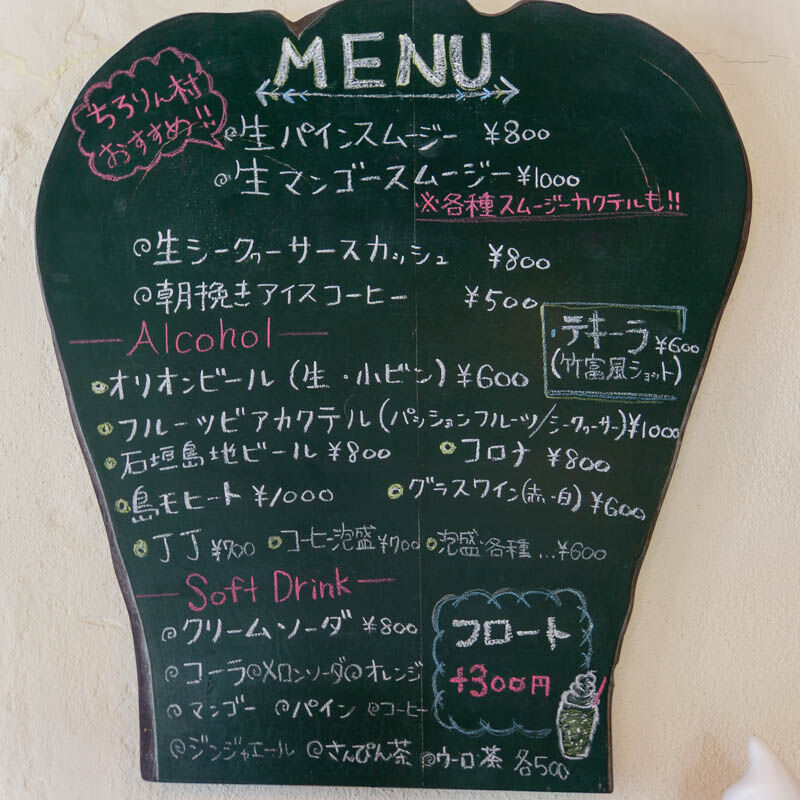 MENU
ちろりん村
おすすめ!!
生パインスムージー ¥800
生マンゴースムージー ¥1000
※各種スムージーカクテルも!!
生シークヮーサースカッシュ ¥800
朝挽きアイスコーヒー ¥500
テキーラ ¥600
(竹富風ショット)
Alcohol
オリオンビール(生・小ビン) ¥600
フルーツビアカクテル(パッションフルーツ/シークヮーサー) ¥1000
石垣島地ビール ¥800 コロナ ¥800
島モヒート ¥1000 グラスワイン(赤・白) ¥600
丁丁 ¥700 コーヒー泡盛 ¥700 泡盛各種...¥600
Soft Drink
クリームソーダ ¥800
コーラ メロンソーダ オレンジ
マンゴー パイン コーヒー
ジンジャエール さんぴん茶 ウーロ茶 各500
フロート
+300円